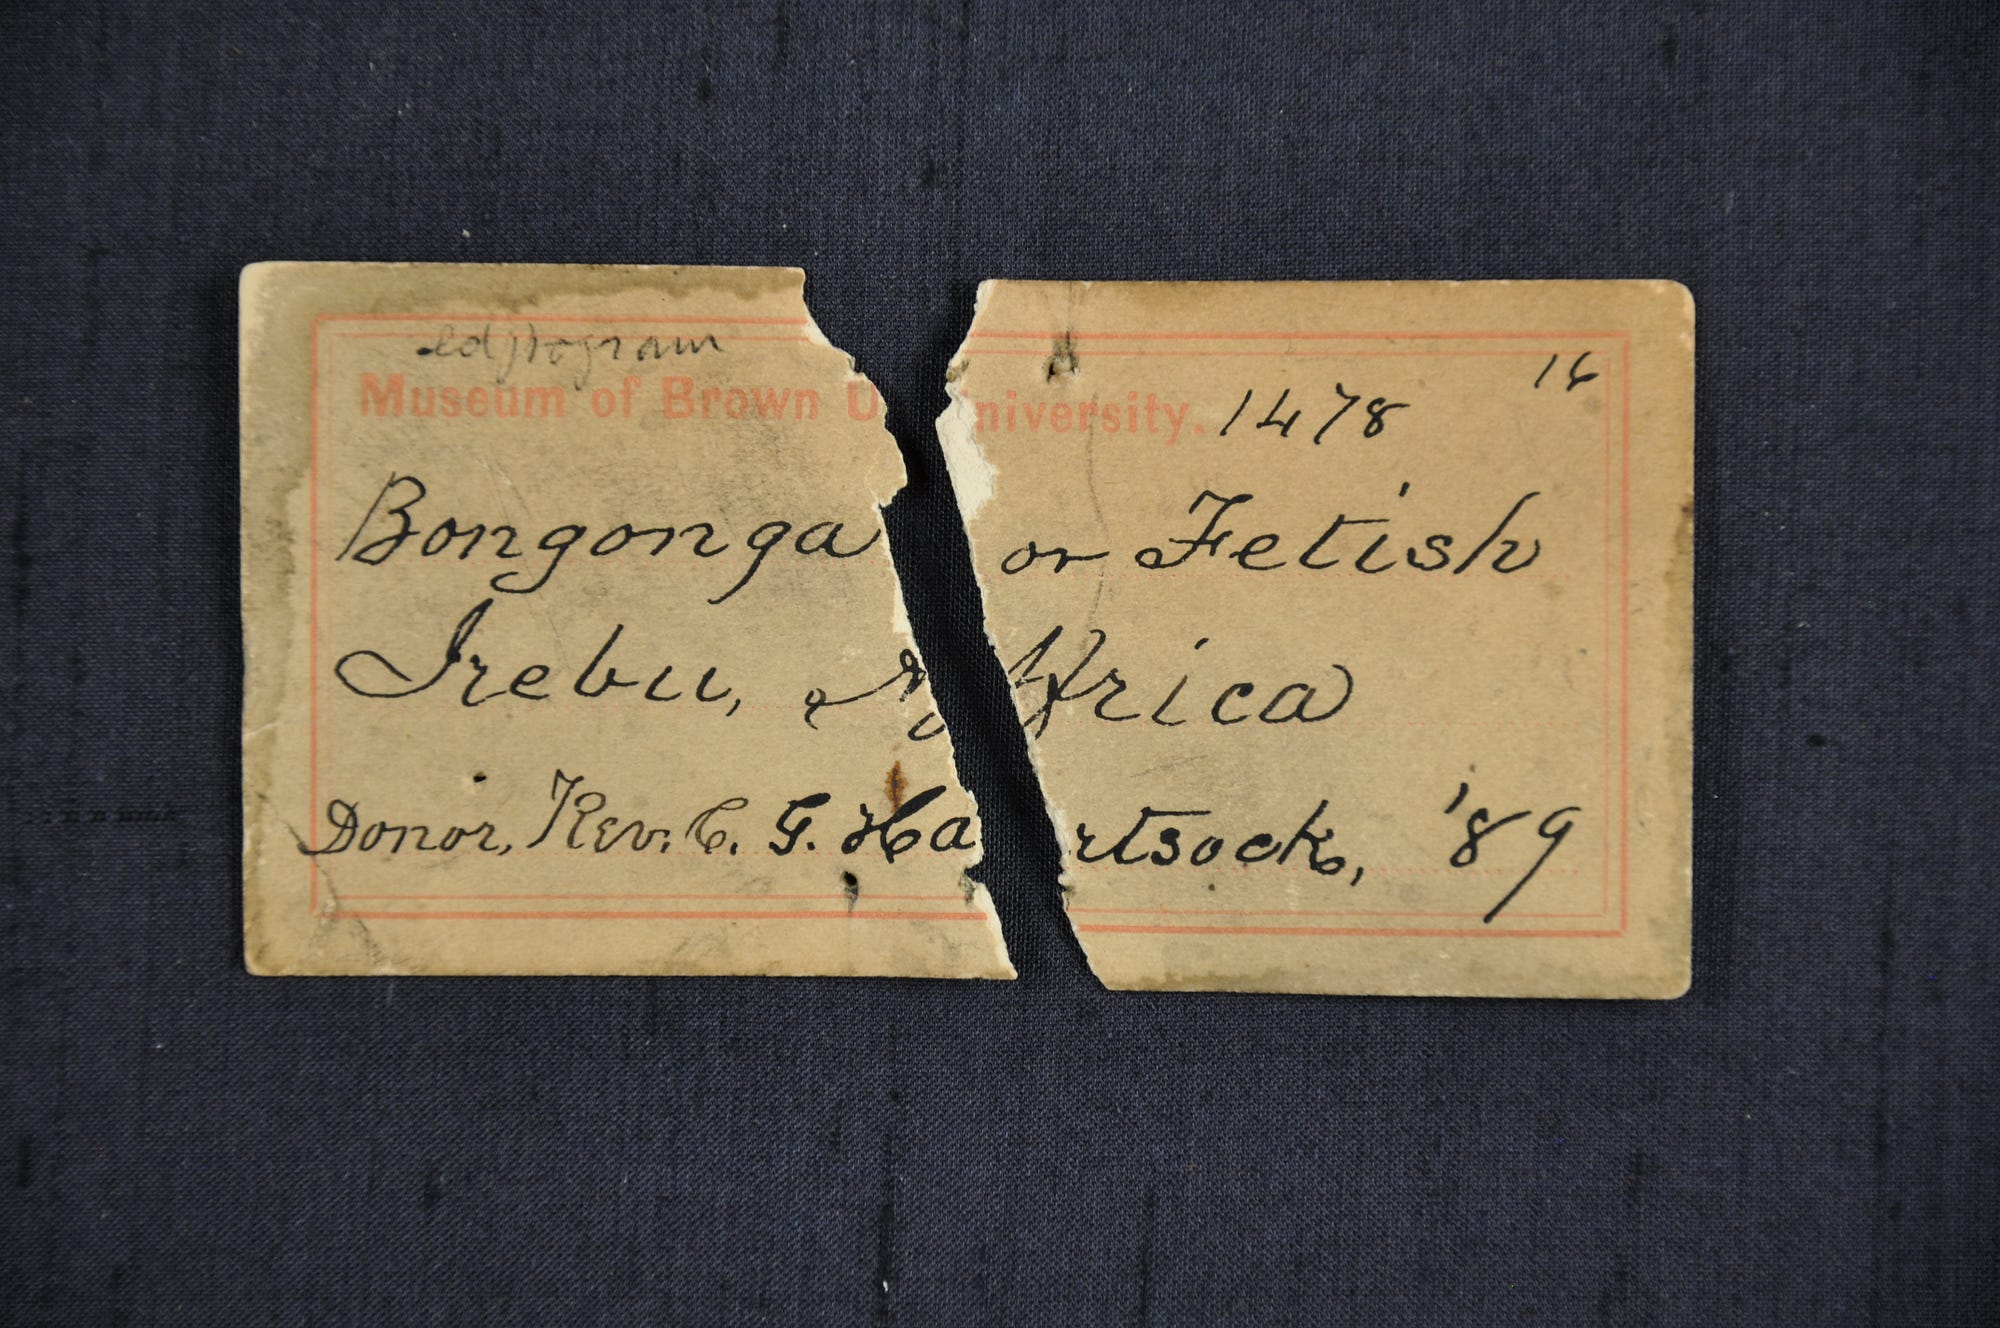 ed program
16
Museum of Brown University. 1478
Bongonga or Fetish
Irebu, Africa
Donor, Rev. C. G. Hartsock, '89